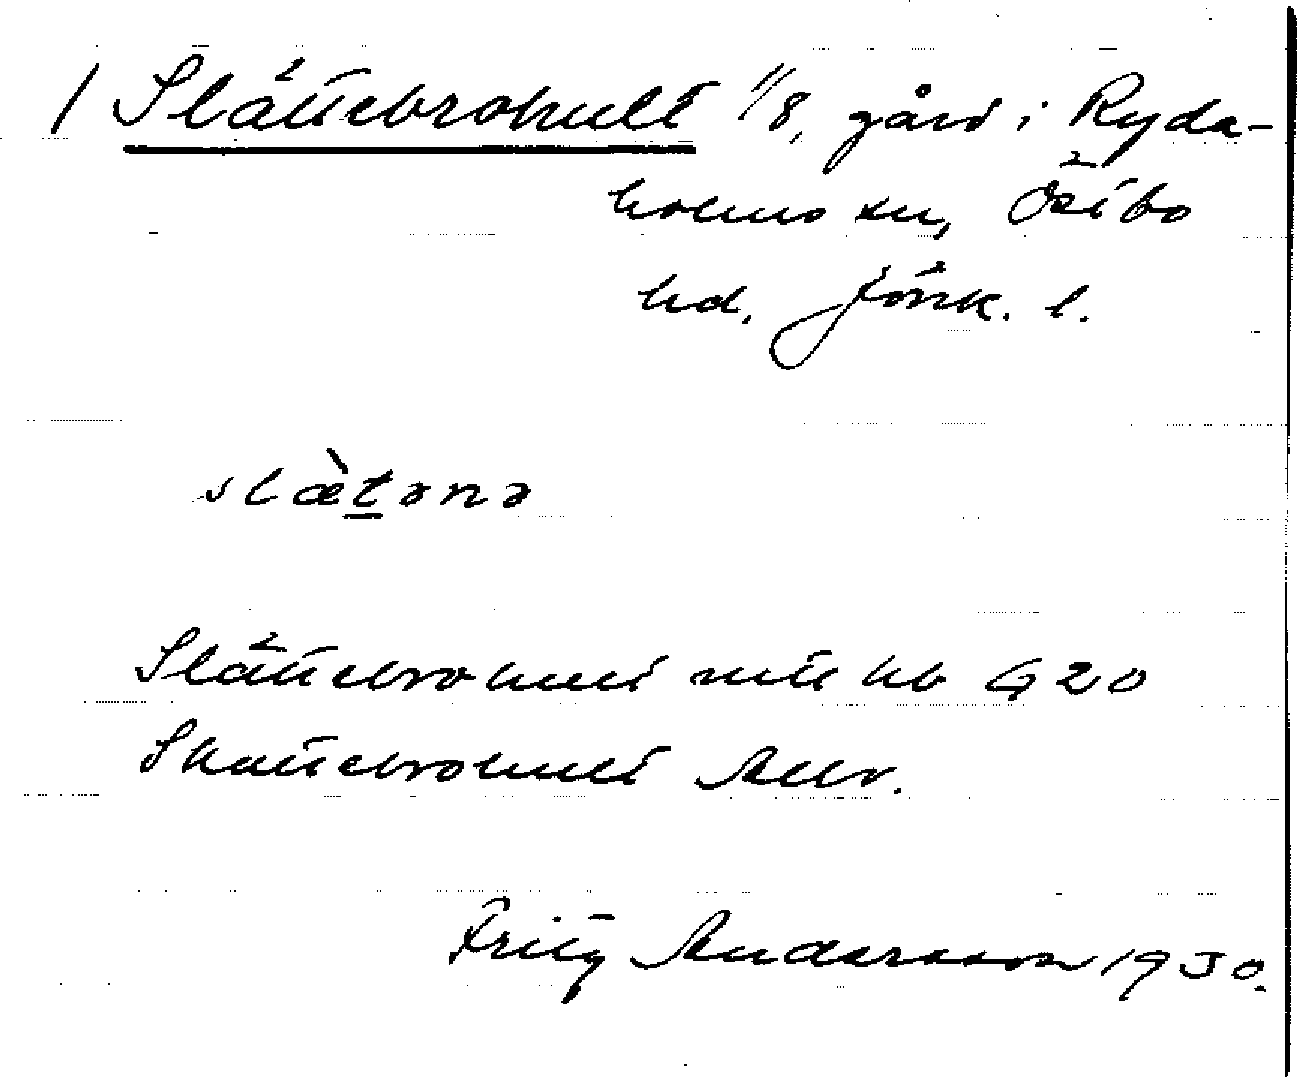 / Slättebrohult 1/8, gård i Ryda-
holms sn, Östbo
hd, Jönk. l.
slæ̀tənə
Slättebrohult mtl hb G20
Skattebrohult
Fritz Andersson 1930.